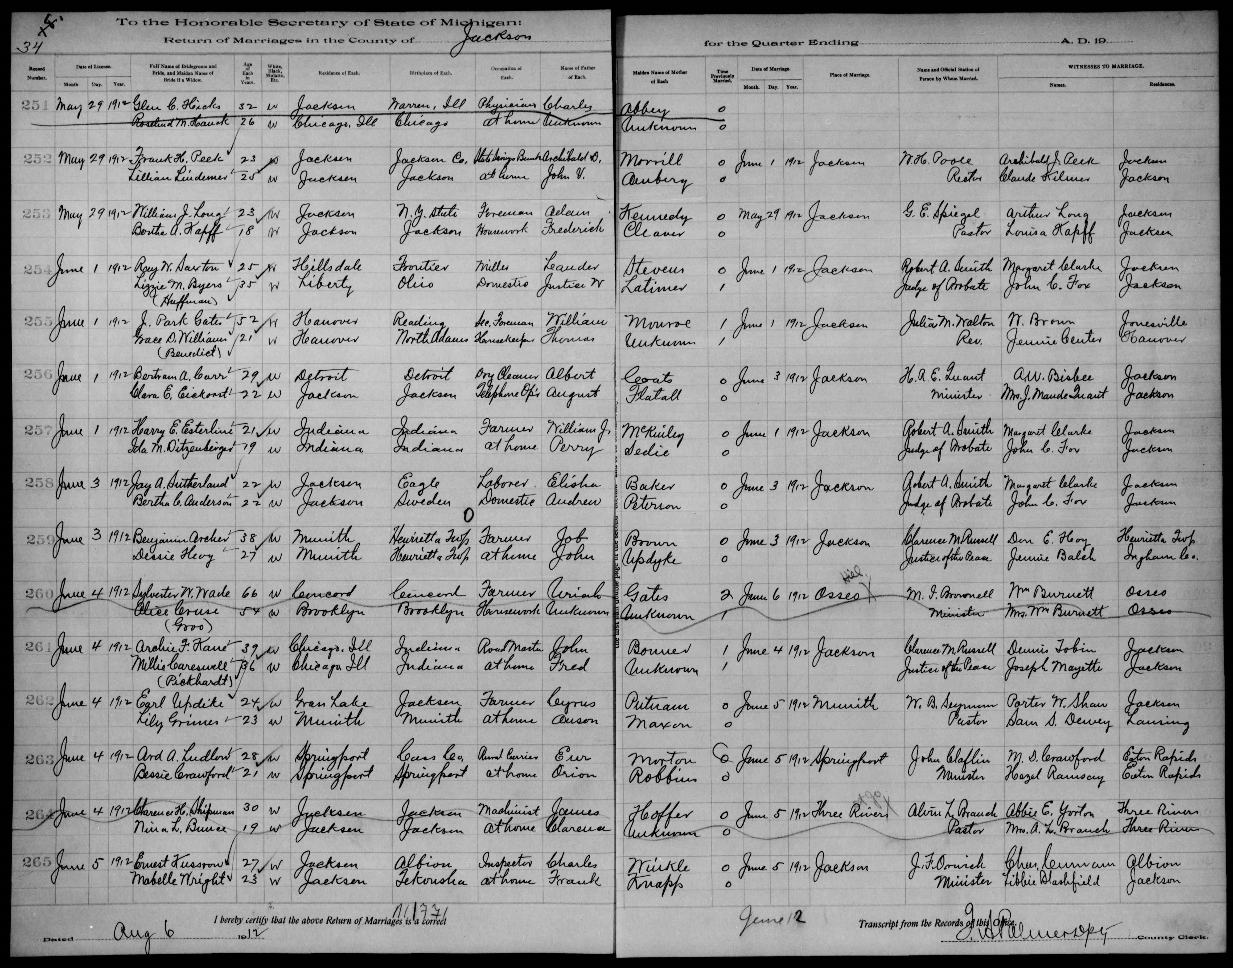 To the Honorable Secretary of State of Michigan:
34
Return of Marriages in the County of Jackson for the Quarter Ending A. D. 19
Record Number. Date of License. Month Day. Year. Full Name of Bridegroom and Bride, and Maiden Name of Bride if a Widow. Age of Each in Years. White, Black, Mulatto, Etc. Residence of Each. Birthplace of Each. Occupation of Each. Name of Father of Each. Maiden Name of Mother of Each. Times Previously Married. Date of Marriage. Month. Day. Year. Place of Marriage. Name and Official Station of Person by Whom Married. WITNESSES TO MARRIAGE. Names. Residences.
251 May 29 1912 Glen C. Hicks 32 W Jackson Warren, Ill Physician Charles Abbey 0
Rosalind M. Hauck 26 W Chicago, Ill Chicago at home Unknown Unknown 0
252 May 29 1912 Frank H. Peek 23 W Jackson Jackson Co. Archibald D. Morrill 0 June 1 1912 Jackson W. H. Poole Archibald J. Peek Jackson
Lillian Lindemer 25 W Jackson Jackson at home John V. Amberg 0 Rector Claude Kilmer Jackson
253 May 29 1912 William J. Long 23 W Jackson N.Y. State Foreman Adam Kennedy 0 May 29 1912 Jackson G. E. Spiegel Arthur Long Jackson
Bertha A. Kapff 18 W Jackson Jackson Housework Frederick Cleaver 0 Pastor Louisa Kapff Jackson
254 June 1 1912 Roy W. Sawton 25 W Hillsdale Frontier Miller Leander Stevens 0 June 1 1912 Jackson Robert A. Smith Margaret Clarke Jackson
Lizzie M. Byers 35 W Liberty Ohio Domestic Justice W Latimer 1 Judge of Probate John C. Fox Jackson
(Huffman)
255 June 1 1912 J. Park Gates 52 W Hanover Reading Sec. Foreman William Monroe 1 June 1 1912 Jackson Julia M. Walton W. Brown Jonesville
Grace D. Williams 21 W Hanover North Adams Housekeeper Thomas Unknown 1 Rev. Jennie Center Hanover
(Benedict)
256 June 1 1912 Bertram A. Carr 29 W Detroit Detroit Dry Cleaner Albert Coats 0 June 3 1912 Jackson H. A. E. Quant A.W. Bisbee Jackson
Clara E. Eickorst 22 W Jackson Jackson Telephone Op'r August Flatall 0 Minister Mrs. J. Maude Quant Jackson
257 June 1 1912 Harry E. Esterline 21 W Indiana Indiana Farmer William J. McKinley 0 June 1 1912 Jackson Robert A. Smith Margaret Clarke Jackson
Ida M. Ditzenberger 19 W Indiana Indiana at home Perry Sedic 0 Judge of Probate John C. Fox Jackson
258 June 3 1912 Jay A. Sutherland 22 W Jackson Eagle Laborer Elisha Baker 0 June 3 1912 Jackson Robert A. Smith Margaret Clarke Jackson
Bertha C. Anderson 22 W Jackson Sweden Domestic Andrew Peterson 0 Judge of Probate John C. Fox Jackson
259 June 3 1912 Benjamin Archer 38 W Munith Henrietta Twp Farmer Job Brown 0 June 3 1912 Jackson Clarence M. Russell Don E. Hoy Henrietta Twp
Dessie Hoy 27 W Munith Henrietta Twp at home John Updyke 0 Justice of the Peace Jennie Balch Ingham Co.
260 June 4 1912 Sylvester W. Wade 66 W Concord Concord Farmer Uriah Gates 2 June 6 1912 Osseo M. J. Brownell Wm Burnett Osseo
Alice Cruse 54 W Brooklyn Brooklyn Housework Unknown Unknown 1 Minister Mrs. Wm Burnett Osseo
(Groo)
261 June 4 1912 Archie F. Kane 39 W Chicago, Ill Indiana Road Master John Bonner 1 June 4 1912 Jackson Clarence M. Russell Dennis Tobin Jackson
Millie Careswell 36 W Chicago Ill Indiana at home Fred Unknown 1 Justice of the Peace Joseph Mayette Jackson
(Pickhardt)
262 June 4 1912 Earl Updike 24 W Grass Lake Jackson Farmer Cyrus Putnam 0 June 5 1912 Munith W. B. Seymour Porter W. Shaw Jackson
Lily Grimes 23 W Munith Munith at home Anson Maxon 0 Pastor Sam S. Dewey Lansing
263 June 4 1912 Ard A. Ludlow 28 W Springport Cass Co. Rural Carrier Eur Morton 0 June 5 1912 Springport John Claflin M. D. Crawford Eaton Rapids
Bessie Crawford 21 W Springport Springport at home Orion Robbins 0 Minister Hazel Ramsay Eaton Rapids
264 June 4 1912 Clarence H. Shipman 30 W Jackson Jackson Machinist James Hoffer 0 June 5 1912 Three Rivers Alvin L. Branch Abbie E. Yorton Three Rivers
Nina L. Bunce 19 W Jackson Jackson at home Clarence Unknown 0 Pastor Mrs. A. L. Branch Three Rivers
265 June 5 1912 Ernest Kussrow 27 W Jackson Albion Inspector Charles Winkle 0 June 5 1912 Jackson Albion
Mabelle Wright 23 W Jackson Tekonsha at home Frank Knapp 0 Minister Libbie Dashfield Jackson
I hereby certify that the above Return of Marriages is a correct Transcript from the Records of this Office.
June 12
Dated Aug 6 1912 County Clerk.